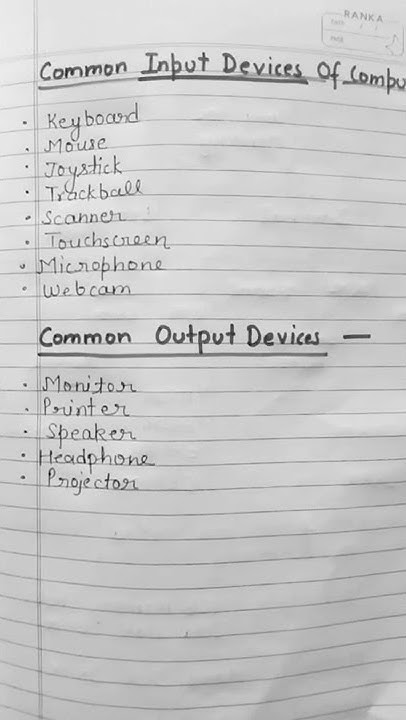 RANKA
Common Input Devices Of Compu
• Keyboard
• Mouse
• Joystick
• Trackball
• Scanner
• Touchscreen
• Microphone
• Webcam
Common Output Devices —
• Monitor
• Printer
• Speaker
• Headphone
• Projector